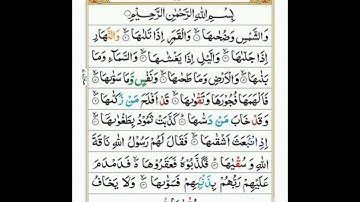 بِسْمِ اللهِ الرَّحْمٰنِ الرَّحِيْمِ
وَالشَّمْسِ وَضُحٰىهَا ۞ وَالْقَمَرِ اِذَا تَلٰىهَا ۞ وَالنَّهَارِ
اِذَا جَلّٰىهَا ۞ وَالَّيْلِ اِذَا يَغْشٰىهَا ۞ وَالسَّمَآءِ وَمَا
بَنٰىهَا ۞ وَالْاَرْضِ وَمَا طَحٰىهَا ۞ وَنَفْسٍ وَّمَا سَوّٰىهَا ۞
فَاَلْهَمَهَا فُجُوْرَهَا وَتَقْوٰىهَا ۞ قَدْ اَفْلَحَ مَنْ زَكّٰىهَا ۞
وَقَدْ خَابَ مَنْ دَسّٰىهَا ۞ كَذَّبَتْ ثَمُوْدُ بِطَغْوٰىهَا ۞
اِذِ انْۢبَعَثَ اَشْقٰىهَا ۞ فَقَالَ لَهُمْ رَسُوْلُ اللهِ نَاقَةَ
اللهِ وَسُقْيٰهَا ۞ فَكَذَّبُوْهُ فَعَقَرُوْهَا ۞ فَدَمْدَمَ
عَلَيْهِمْ رَبُّهُمْ بِذَنْۢبِهِمْ فَسَوّٰىهَا ۞ وَلَا يَخَافُ